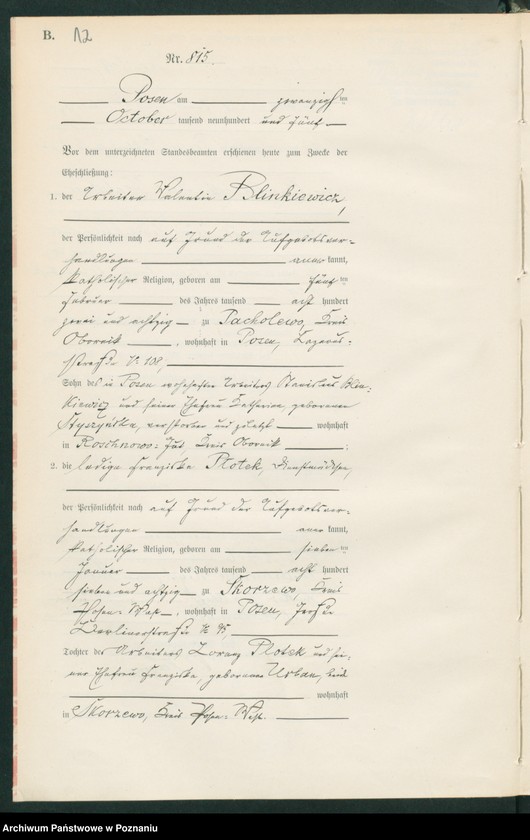 B. 12
Nr. 815.
Posen am zwanzigsten
October tausend neunhundert und fünf
Vor dem unterzeichneten Standesbeamten erschienen heute zum Zwecke der
Eheschließung:
1. der Arbeiter Valentin Blinkiewicz,
der Persönlichkeit nach auf Grund der Aufgebotsver-
handlungen anerkannt,
katholischer Religion, geboren am fünften
Februar des Jahres tausend acht hundert
zwei und achtzig zu Pacholewo, Kreis
Obornik, wohnhaft in Posen, Lazarus-
straße № 108,
Sohn des in Posen wohnhaften Arbeiters Stanislaus Blin-
kiewicz und seiner Ehefrau Katharina, geborenen
verstorben und zuletzt wohnhaft
in Roschnowo-Gut, Kreis Obornik;
2. die ledige Franziska Plotek, Dienstmädchen,
der Persönlichkeit nach auf Grund der Aufgebotsver-
handlungen anerkannt,
katholischer Religion, geboren am siebenten
Januar des Jahres tausend acht hundert
sieben und achtzig zu Skorzewo, Kreis
Posen-West, wohnhaft in Posen,
Berlinerstraße №
Tochter des Arbeiters Lorenz Plotek und sei-
ner Ehefrau Franziska, geborenen Urban, beide
wohnhaft
in Skorzewo, Kreis Posen-West.
Archiwum Państwowe w Poznaniu